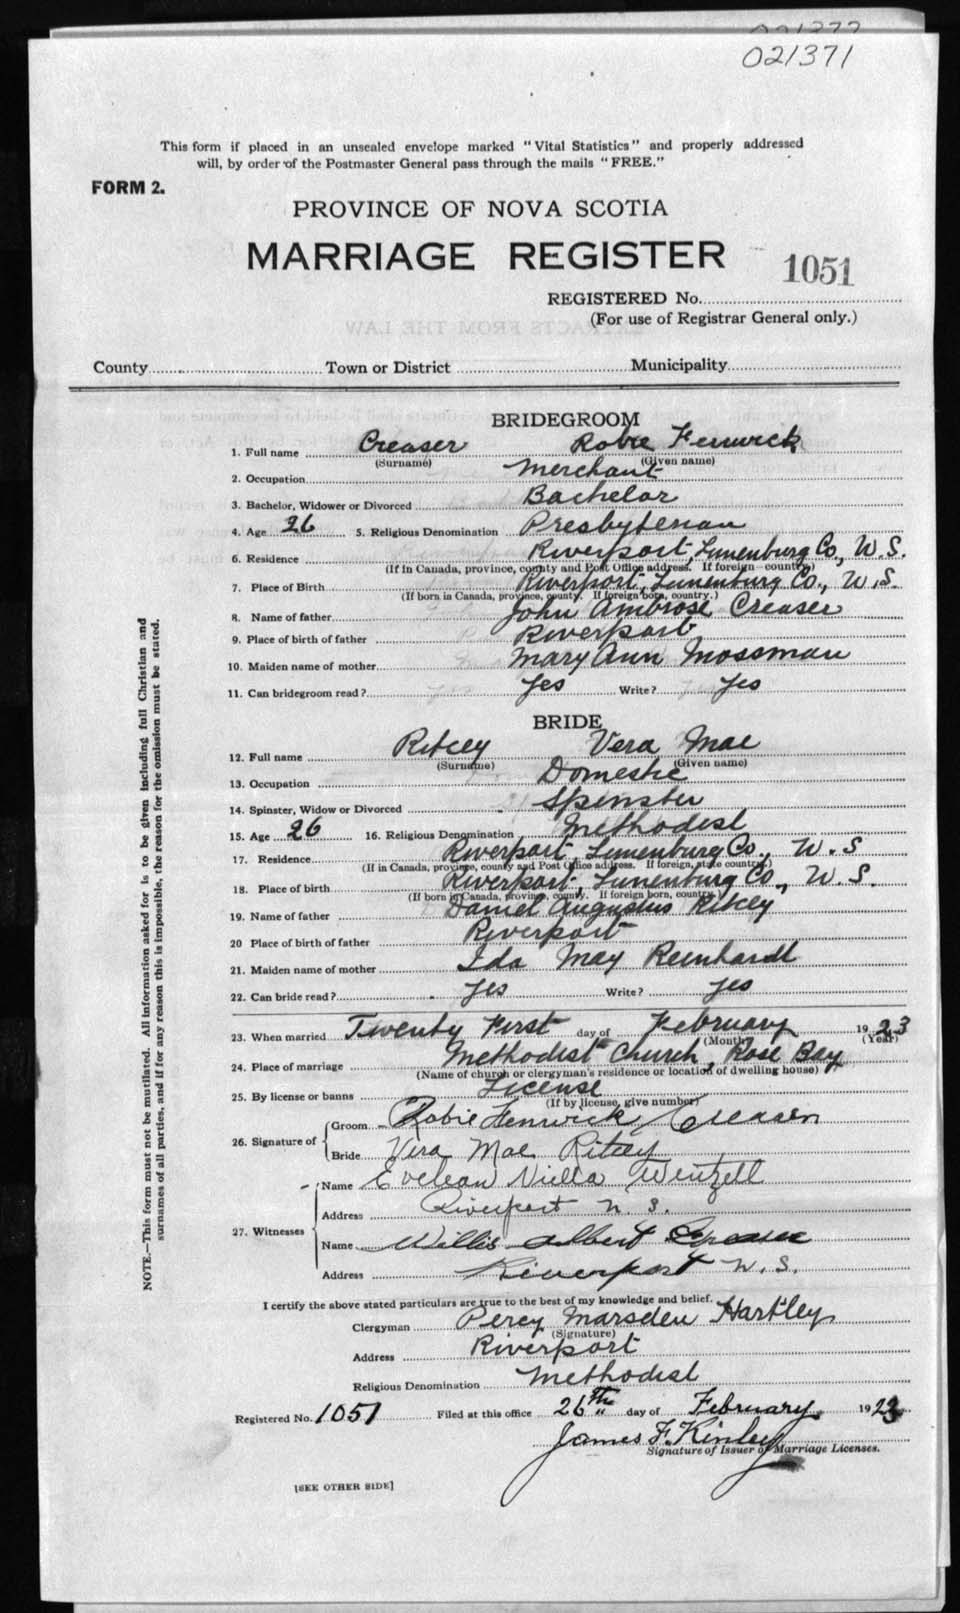 021372
021371
This form if placed in an unsealed envelope marked "Vital Statistics" and properly addressed
will, by order of the Postmaster General pass through the mails "FREE."
FORM 2.
PROVINCE OF NOVA SCOTIA
MARRIAGE REGISTER
1051
REGISTERED No.
(For use of Registrar General only.)
County Town or District Municipality
BRIDEGROOM
1. Full name Creaser Robie Fenwick
(Surname) (Given name)
2. Occupation Merchant
3. Bachelor, Widower or Divorced Bachelor
4. Age 26 5. Religious Denomination Presbyterian
6. Residence Riverport, Lunenburg Co., N.S.
(If in Canada, province, county and Post Office address. If foreign country)
7. Place of Birth Riverport, Lunenburg Co., N.S.
(If born in Canada, province, county. If foreign born, country.)
8. Name of father John Ambrose Creaser
9. Place of birth of father Riverport
10. Maiden name of mother Mary Ann Mossman
11. Can bridegroom read? Yes Write? Yes
BRIDE
12. Full name Ritcey Vera Mae
(Surname) (Given name)
13. Occupation Domestic
14. Spinster, Widow or Divorced Spinster
15. Age 26 16. Religious Denomination Methodist
17. Residence Riverport, Lunenburg Co., N.S
(If in Canada, province, county and Post Office address. If foreign, state country.)
18. Place of birth Riverport, Lunenburg Co., N.S.
(If born in Canada, province, county. If foreign born, country.)
19. Name of father Daniel Augustus Ritcey
20 Place of birth of father Riverport
21. Maiden name of mother Ida May Reinhardt
22. Can bride read? Yes Write? Yes
23. When married Twenty First day of February 1923
(Month) (Year)
24. Place of marriage Methodist Church, Rose Bay
(Name of church or clergyman's residence or location of dwelling house)
25. By license or banns License
(If by license, give number)
26. Signature of
Groom Robie Fenwick Creaser
Bride Vera Mae Ritcey
27. Witnesses
Name Evelean Wentzell
Address Riverport N.S.
Name Willis Albert Creaser
Address Riverport N.S.
I certify the above stated particulars are true to the best of my knowledge and belief.
Clergyman Percy Marsden Hartley
(Signature)
Address Riverport
Religious Denomination Methodist
Registered No. 1051 Filed at this office 26th day of February 1923
James F. Kinley
Signature of Issuer of Marriage Licenses.
[SEE OTHER SIDE]
NOTE.—This form must not be mutilated. All information asked for is to be given including full Christian and
surnames of all parties, and if for any reason this is impossible, the reason for the omission must be stated.